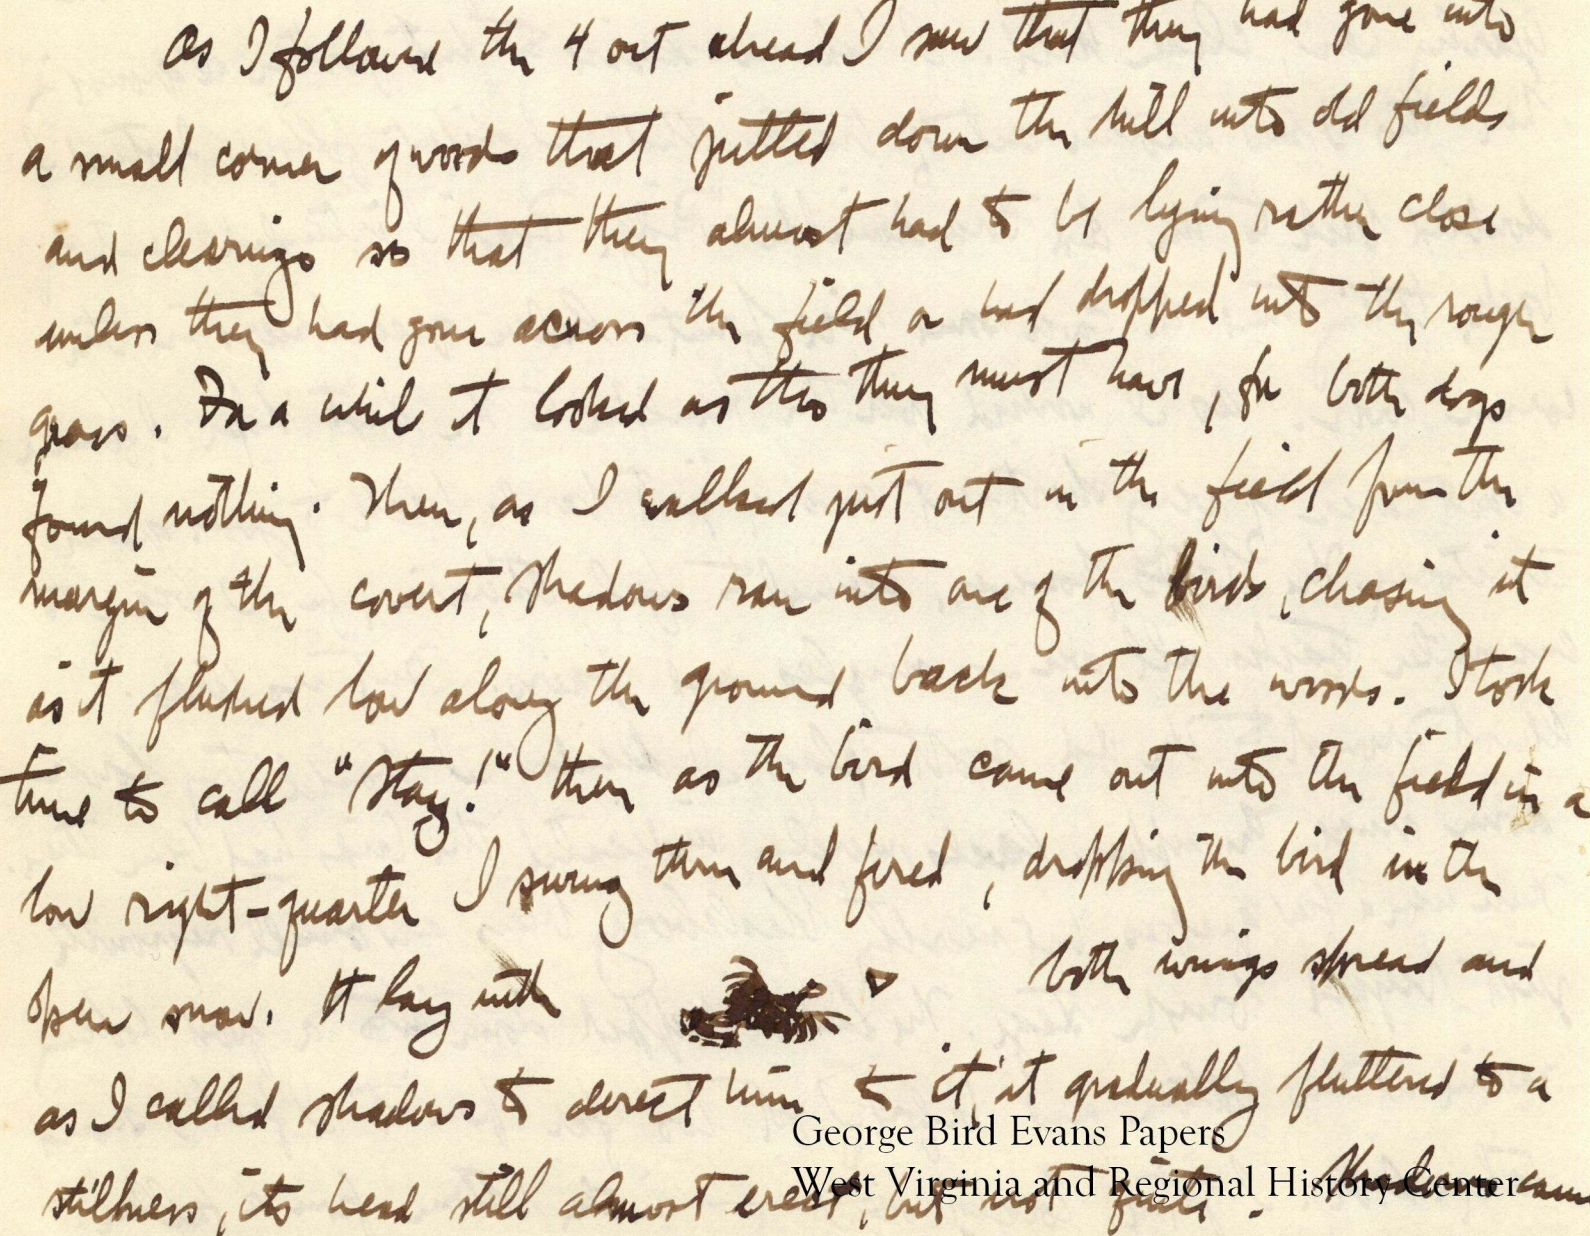 As I followed the 4 out ahead I saw that they had gone into
a small corner of woods that jutted down the hill into old fields
and clearings so that they almost had to be lying rather close
unless they had gone across the field or had dropped into the rough
grass. For a while it looked as tho they must have, for both dogs
found nothing. Then, as I walked just out in the field from the
margin of the covert, Shadows ran into one of the birds, chasing it
as it flushed low along the ground back into the woods. I took
time to call "Stay!" then as the bird came out into the field in a
low right-quarter I swung thru and fired, dropping the bird in the
open snow. It lay with both wings spread and
as I called Shadows to direct him to it, it gradually fluttered to a
stillness, its head still almost erect, but not . Shadows came
George Bird Evans Papers
West Virginia and Regional History Center